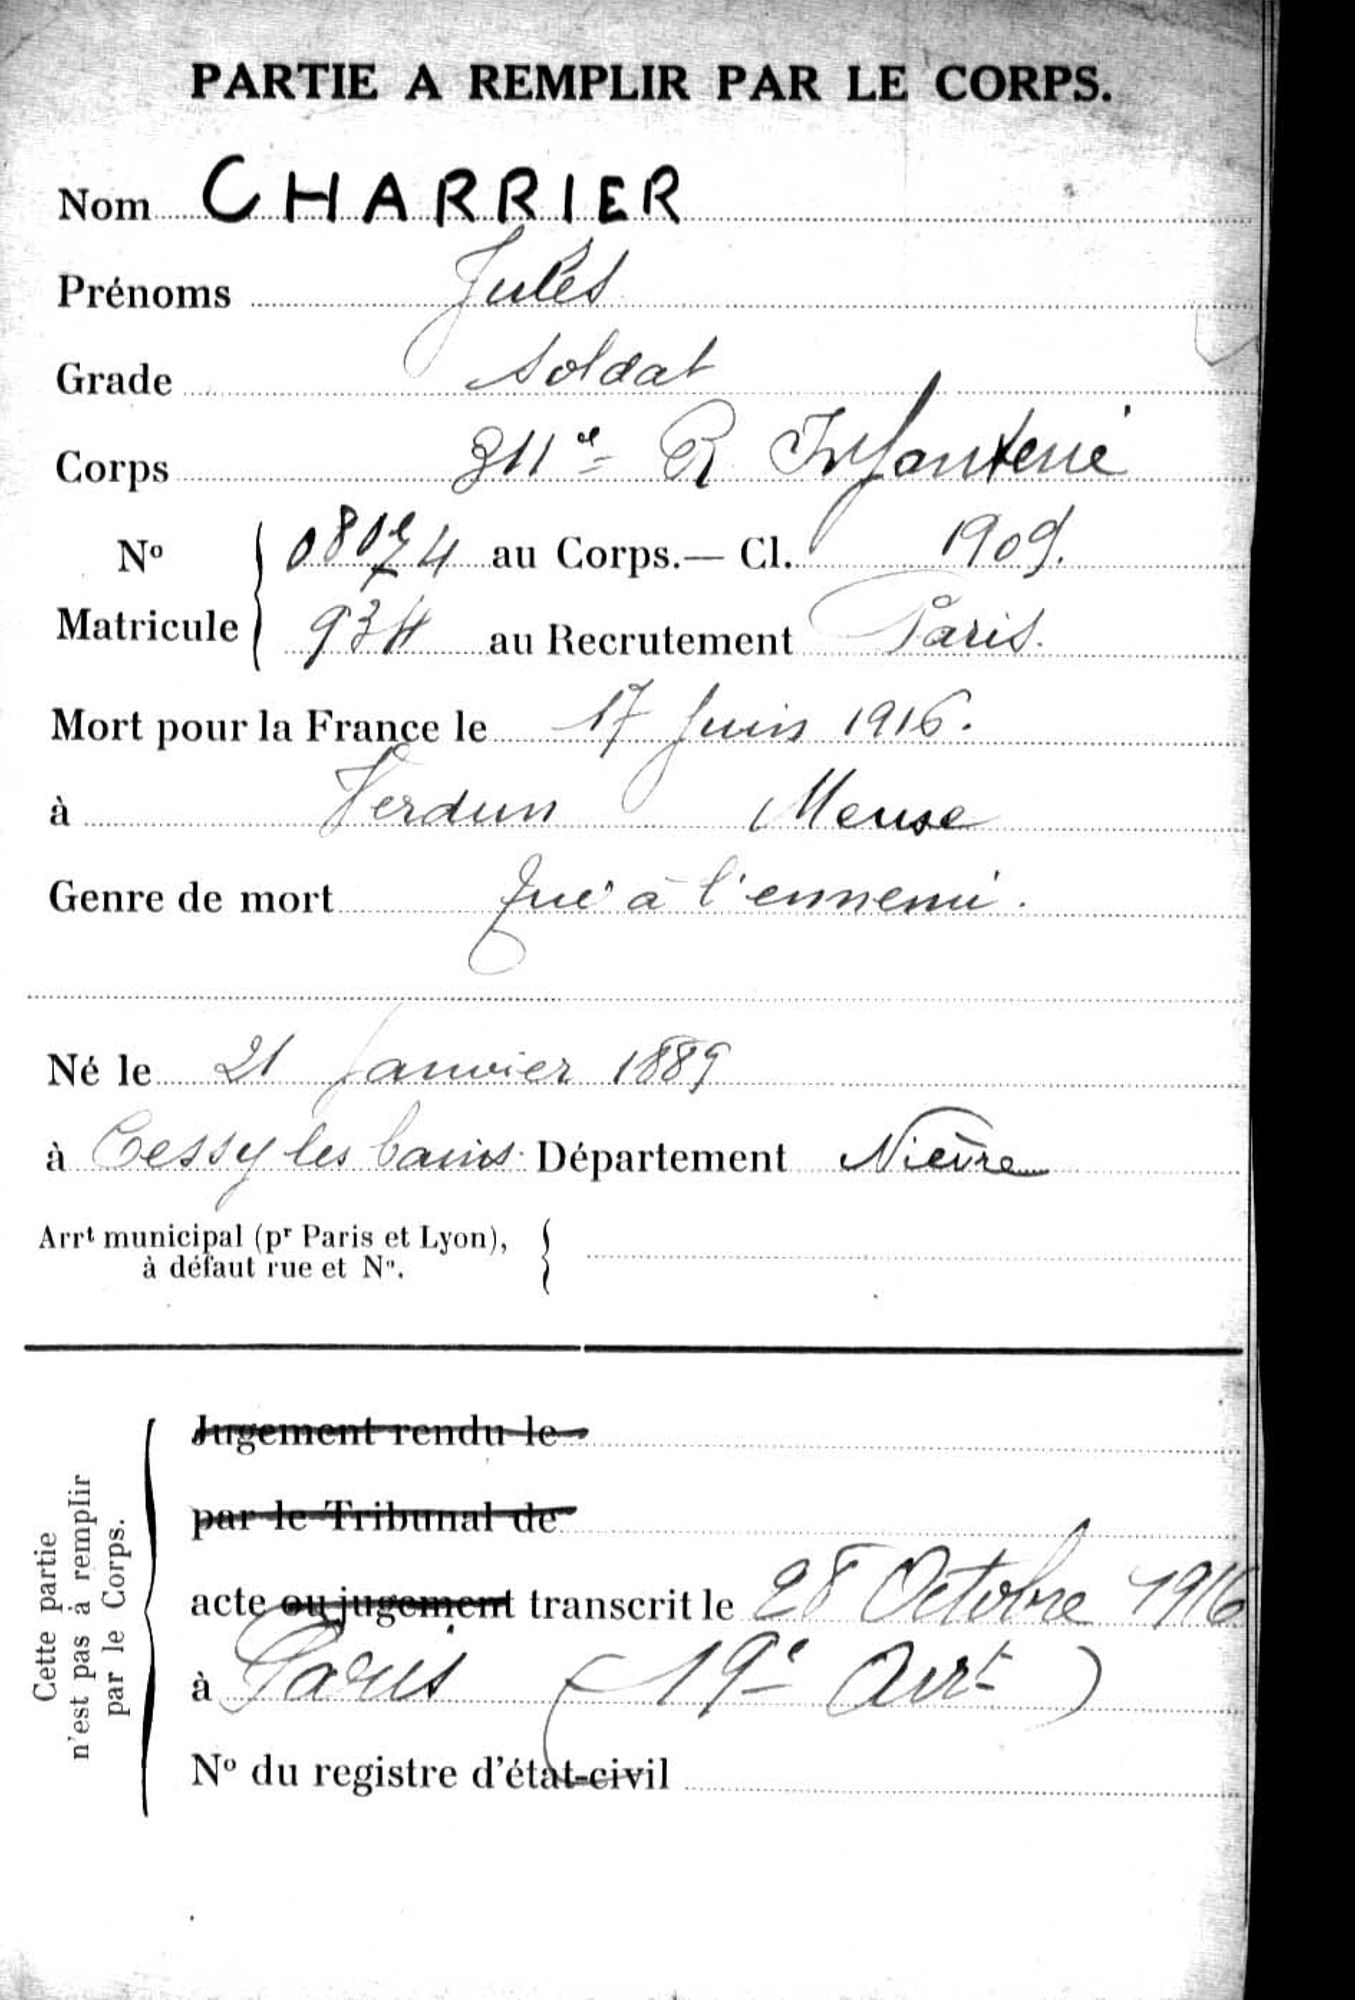 PARTIE A REMPLIR PAR LE CORPS.
Nom CHARRIER
Prénoms Jules
Grade Soldat
Corps 311e R Infanterie
No au Corps.— Cl. 1909.
Matricule 934 au Recrutement Paris.
Mort pour la France le 17 Juin 1916.
à Verdun Meuse
Genre de mort Tué à l'ennemi.
Né le 21 Janvier 1889
à Cessy les bains. Département Nièvre
Arrt municipal (pr Paris et Lyon),
à défaut rue et No.
Jugement rendu le
par le Tribunal de
acte ou jugement transcrit le 28 Octobre 1916
à Paris (19e Arrt)
No du registre d'état-civil
Cette partie
n'est pas à remplir
par le Corps.